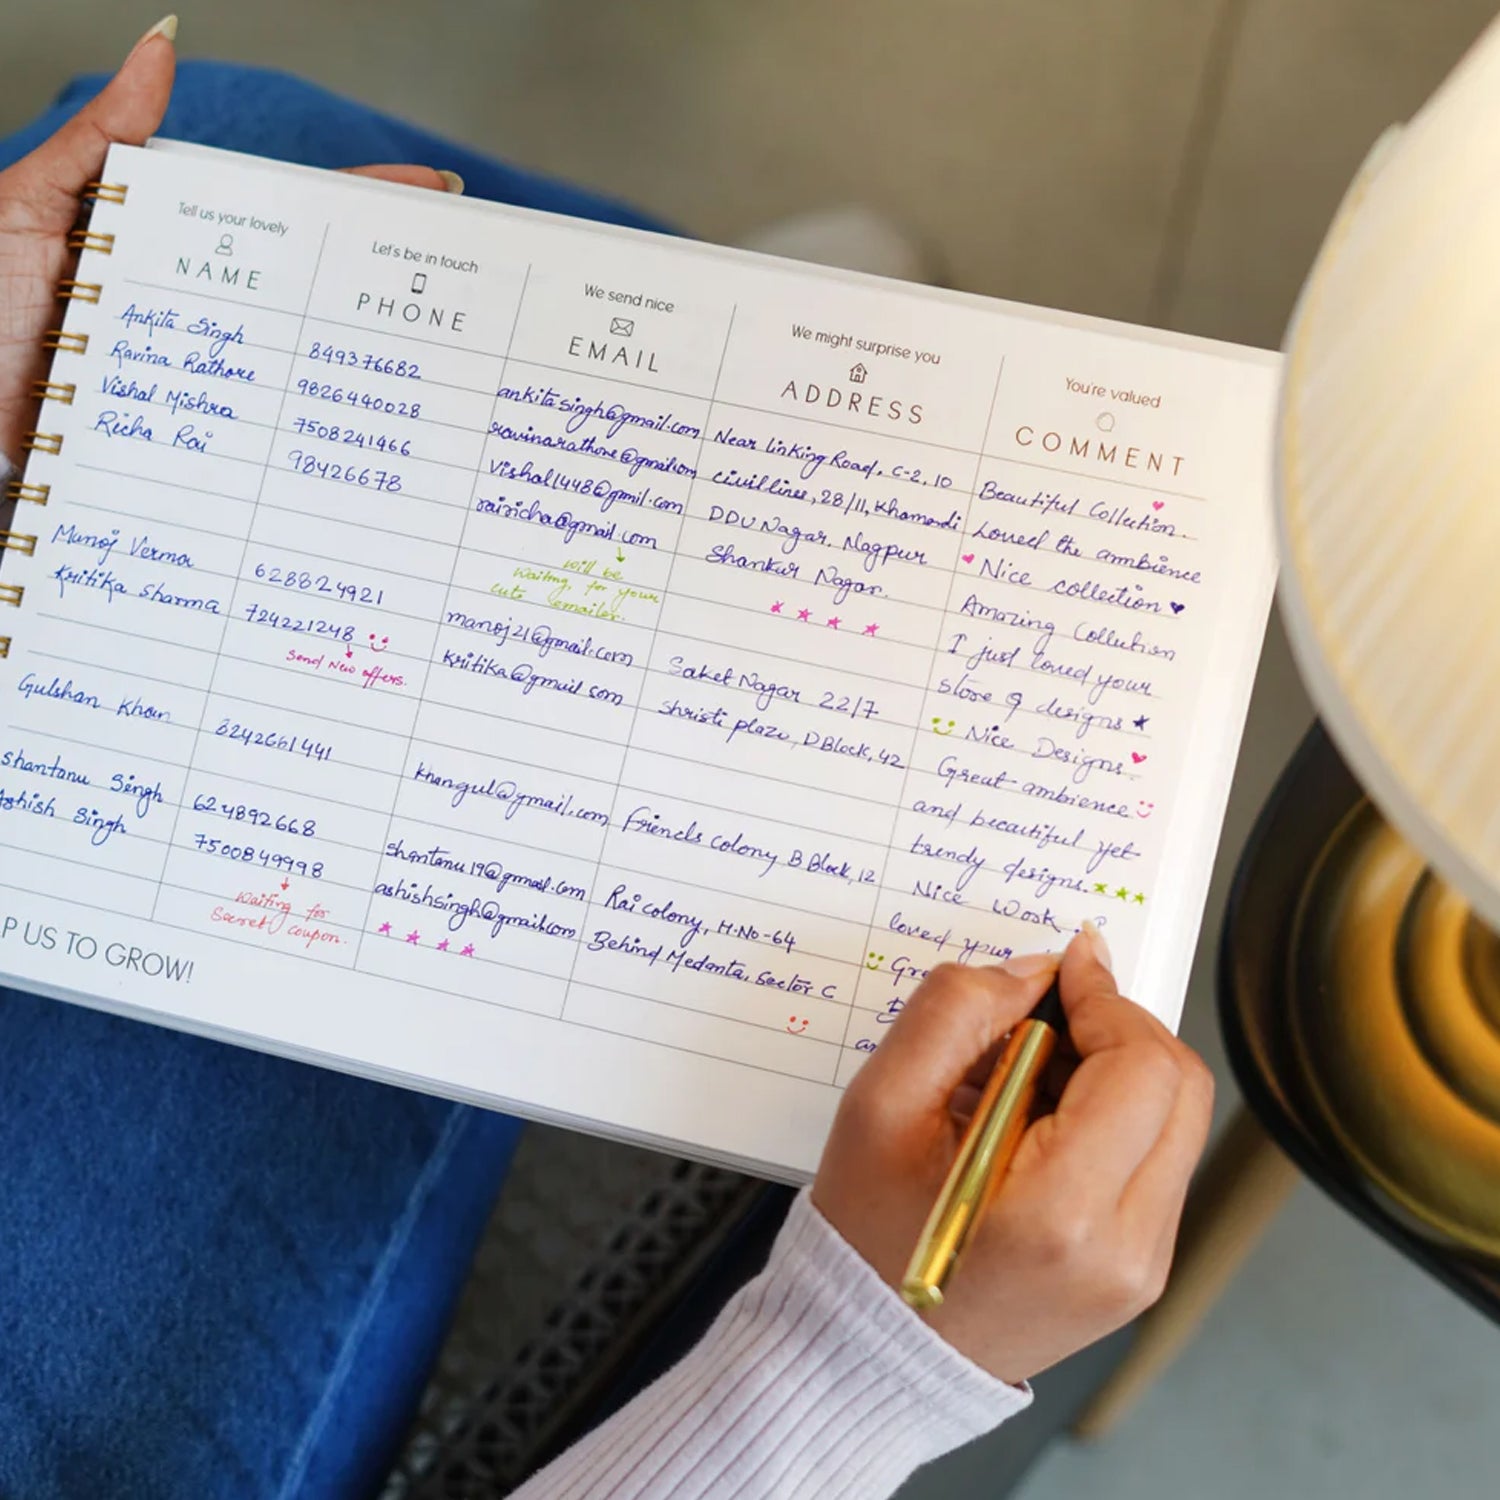 Tell us your lovely
NAME
Let's be in touch
PHONE
We send nice
EMAIL
We might surprise you
ADDRESS
You're valued
COMMENT
Ankita Singh 849376682 ankitasingh@gmail.com Near linking Road, C-2, 10 Beautiful Collection.
Ravina Rathore 9826440028 ravinarathore@gmail.com Civil lines, 28/11, Khamardi Loved the ambience
Vishal Mishra 7508241466 Vishal1448@gmil.com DDU Nagar, Nagpur Nice collection
Richa Rai 98426678 rairicha@gmail.com Shankar Nagar. Amazing Collution
will be
waiting, for your
cute emailer.
I just loved your
store & designs
Manoj Verma 628824921 manoj21@gmail.com Saket Nagar 22/7 Nice Designs.
Kritika Sharma 724221248 Kritika@gmail com Shristi plaza, D Block, 42 Great ambience
Send New offers.
and beautiful yet
trendy designs.
Gulshan Khan 3242661441 khangul@gmail.com Friends colony B Block, 12 Nice Work
loved your
Shantanu Singh 624892668 shantanu19@gmail.com Rai colony, H.No-64
Ashish Singh 7500849998 ashishsingh@gmail.com Behind Medanta, Sector C
Waiting for
Secret coupon.
P US TO GROW!